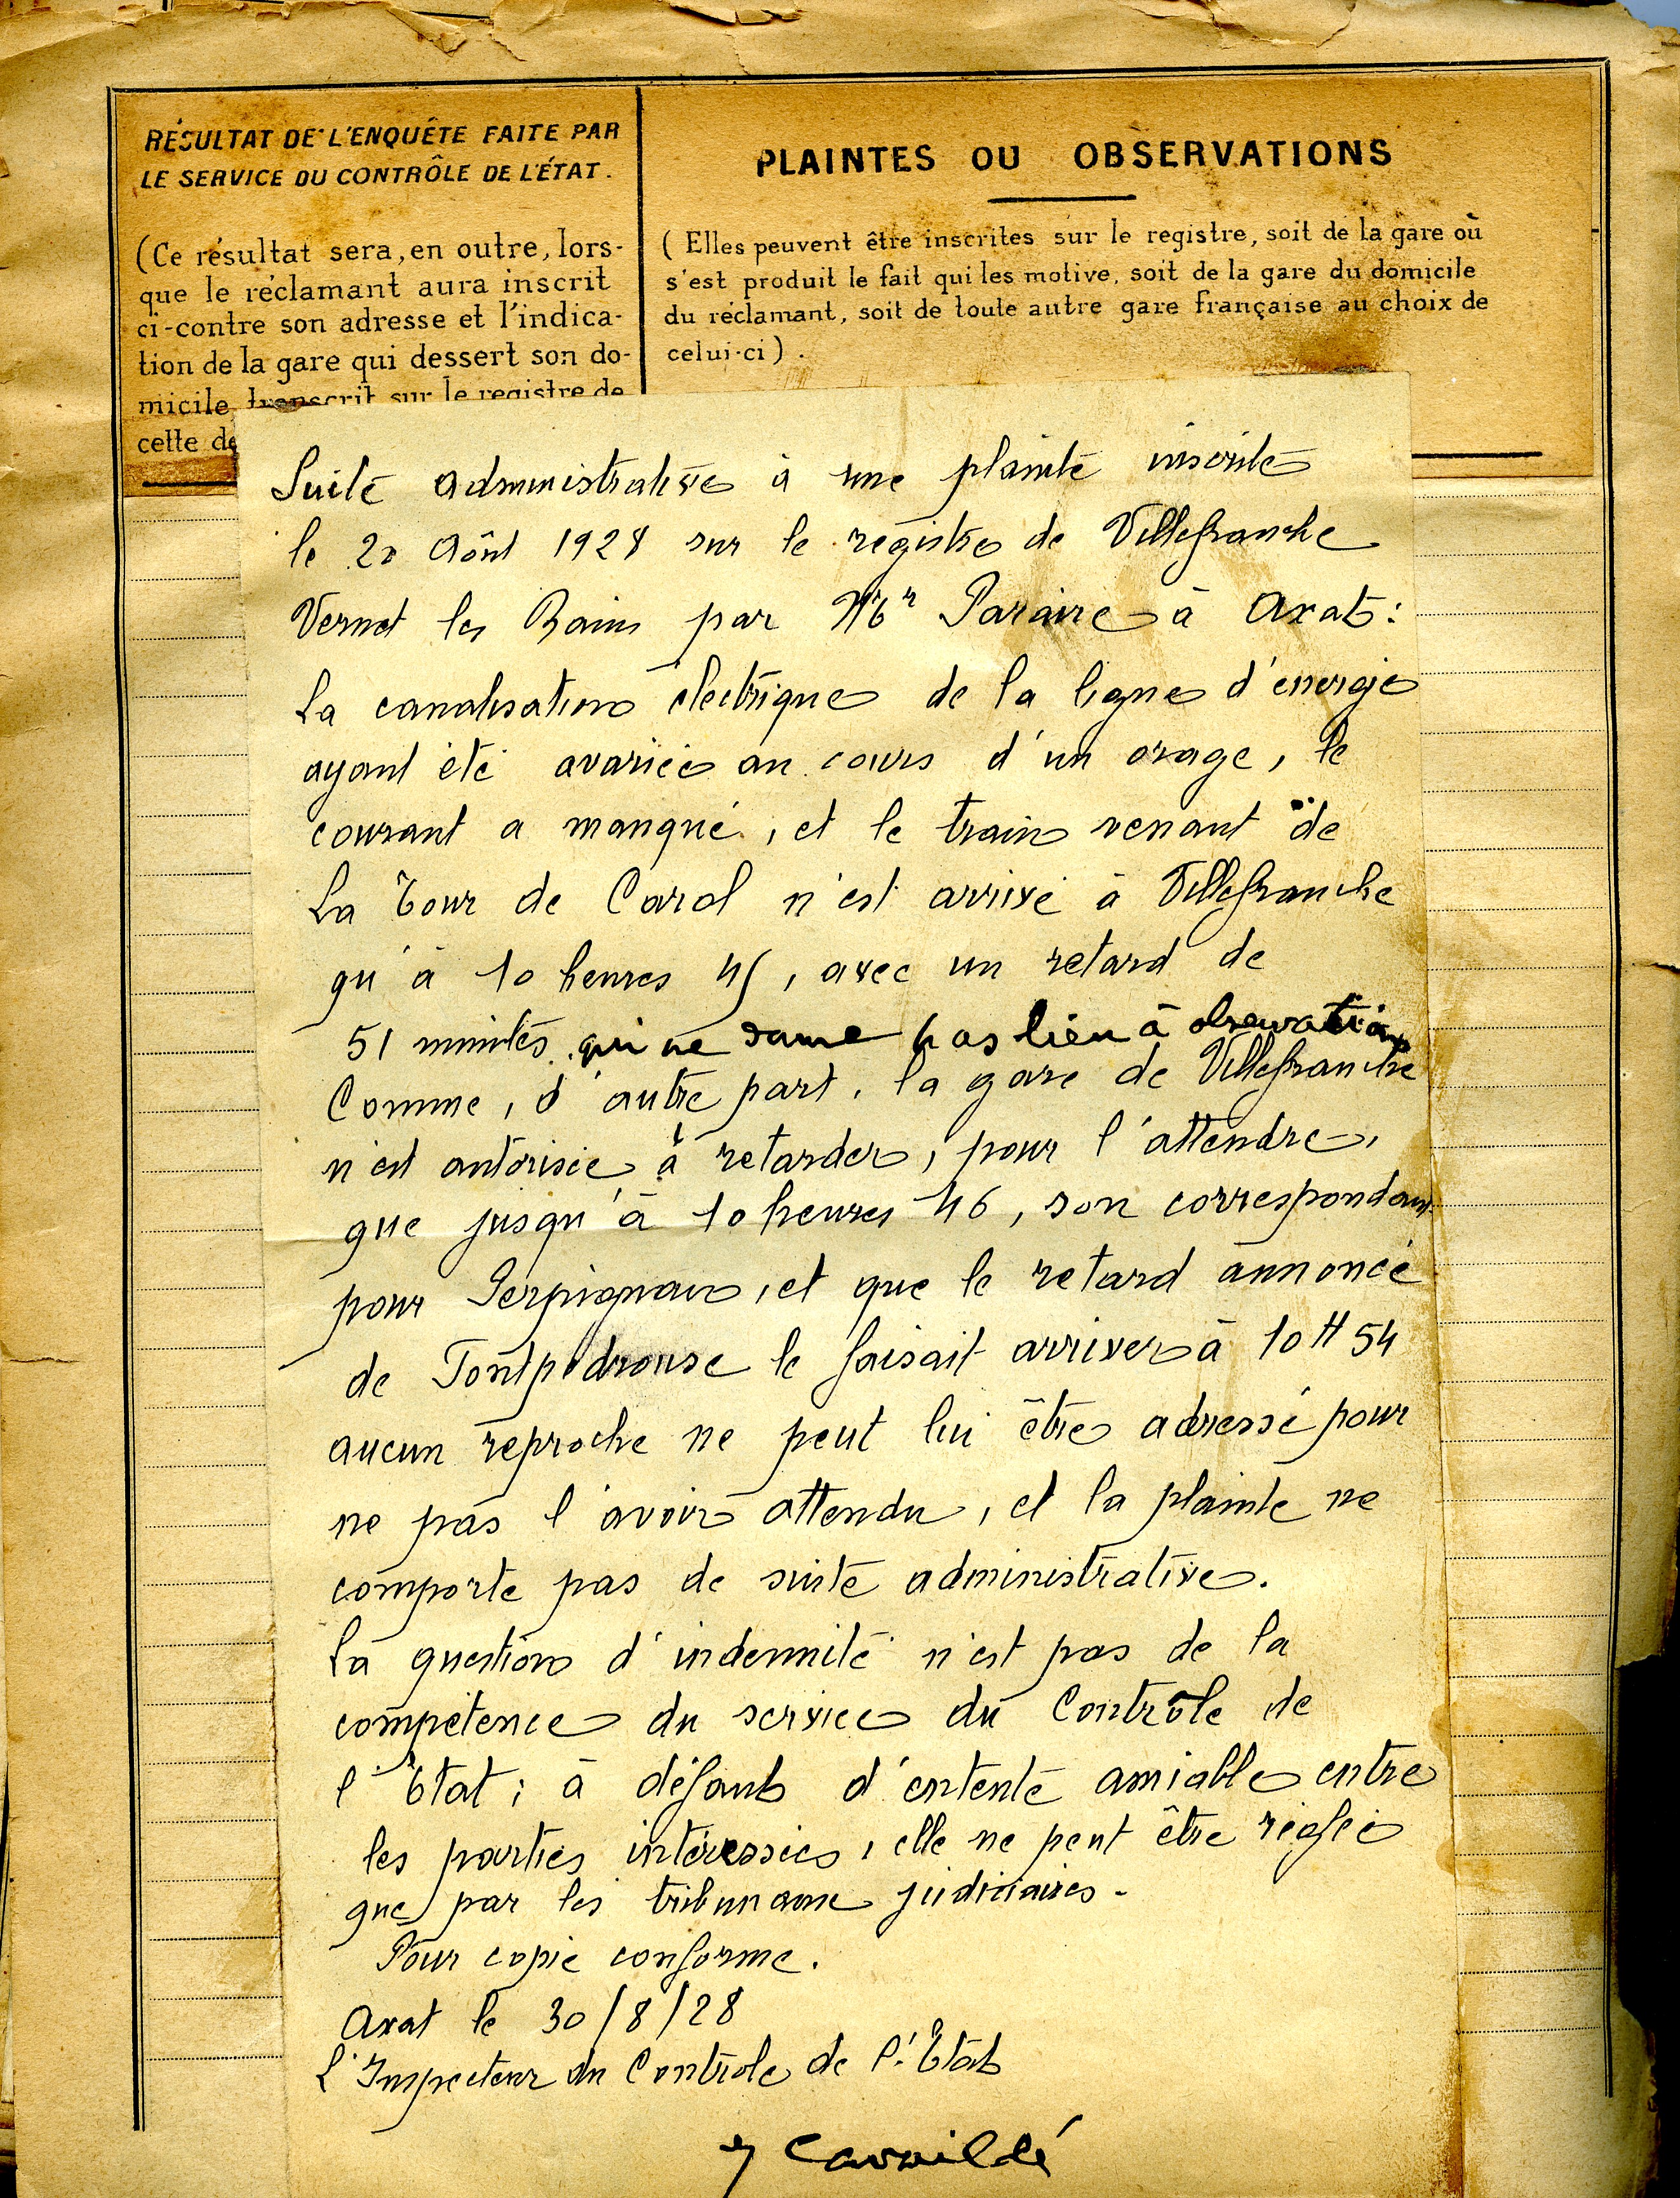 RÉSULTAT DE L'ENQUÊTE FAITE PAR
LE SERVICE DU CONTRÔLE DE L'ÉTAT.
(Ce résultat sera, en outre, lors-
que le réclamant aura inscrit
ci-contre son adresse et l'indica-
tion de la gare qui dessert son do-
micile transcrit sur le registre de
cette
PLAINTES OU OBSERVATIONS
(Elles peuvent être inscrites sur le registre, soit de la gare où
s'est produit le fait qui les motive, soit de la gare du domicile
du réclamant, soit de toute autre gare française au choix de
celui-ci).
Suite administrative à une plainte inscrite
le Août 1928 sur le registre de Villefranche
Vernet les Bains par Mr Paraire à Axat:
La canalisation électrique de la ligne d'énergie
ayant été avariée au cours d'un orage, le
courant a manqué, et le train venant de
La Tour de Carol n'est arrivé à Villefranche
qu'à 10 heures 45, avec un retard de
51 minutes qui ne donne pas lieu à observation
Comme, d'autre part, la gare de Villefranche
n'est autorisée à retarder, pour l'attendre,
que jusqu'à 10 heures 46, son correspondant
pour Perpignan, et que le retard annoncé
de Fontpédrouse le faisait arriver à 10 H 54
aucun reproche ne peut lui être adressé pour
ne pas l'avoir attendu, et la plainte ne
comporte pas de suite administrative.
La question d'indemnité n'est pas de la
compétence du service du Contrôle de
l'Etat; à défaut d'entente amiable entre
les parties intéressées, elle ne peut être réglée
que par les tribunaux judiciaires.
Pour copie conforme.
Axat le 30/8/28
L'Inspecteur du Controle de l'Etat